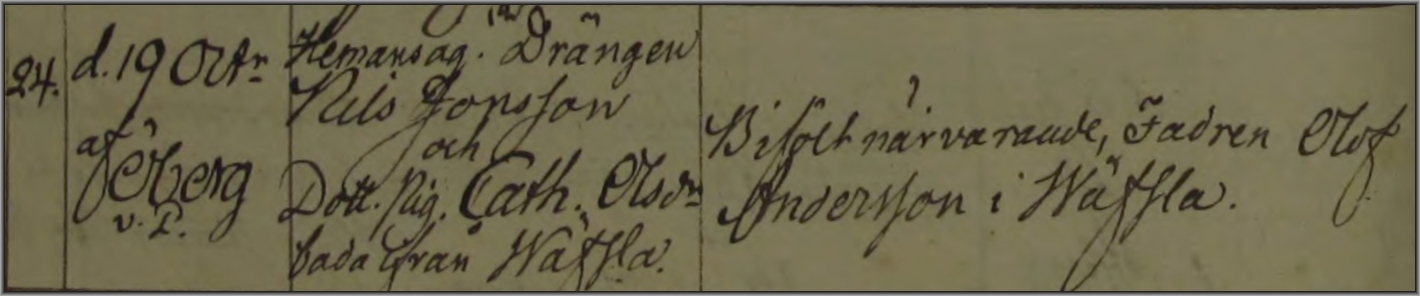 24.
d. 19 Octr
af Öberg
v. P.
Hemansäg. Drängen
Nils Jonsson
och
Dott. Pig. Cath. Olsdr
båda från Wäfsla.
Bifölt närvarande, Fadren Olof
Andersson i Wäfsla.